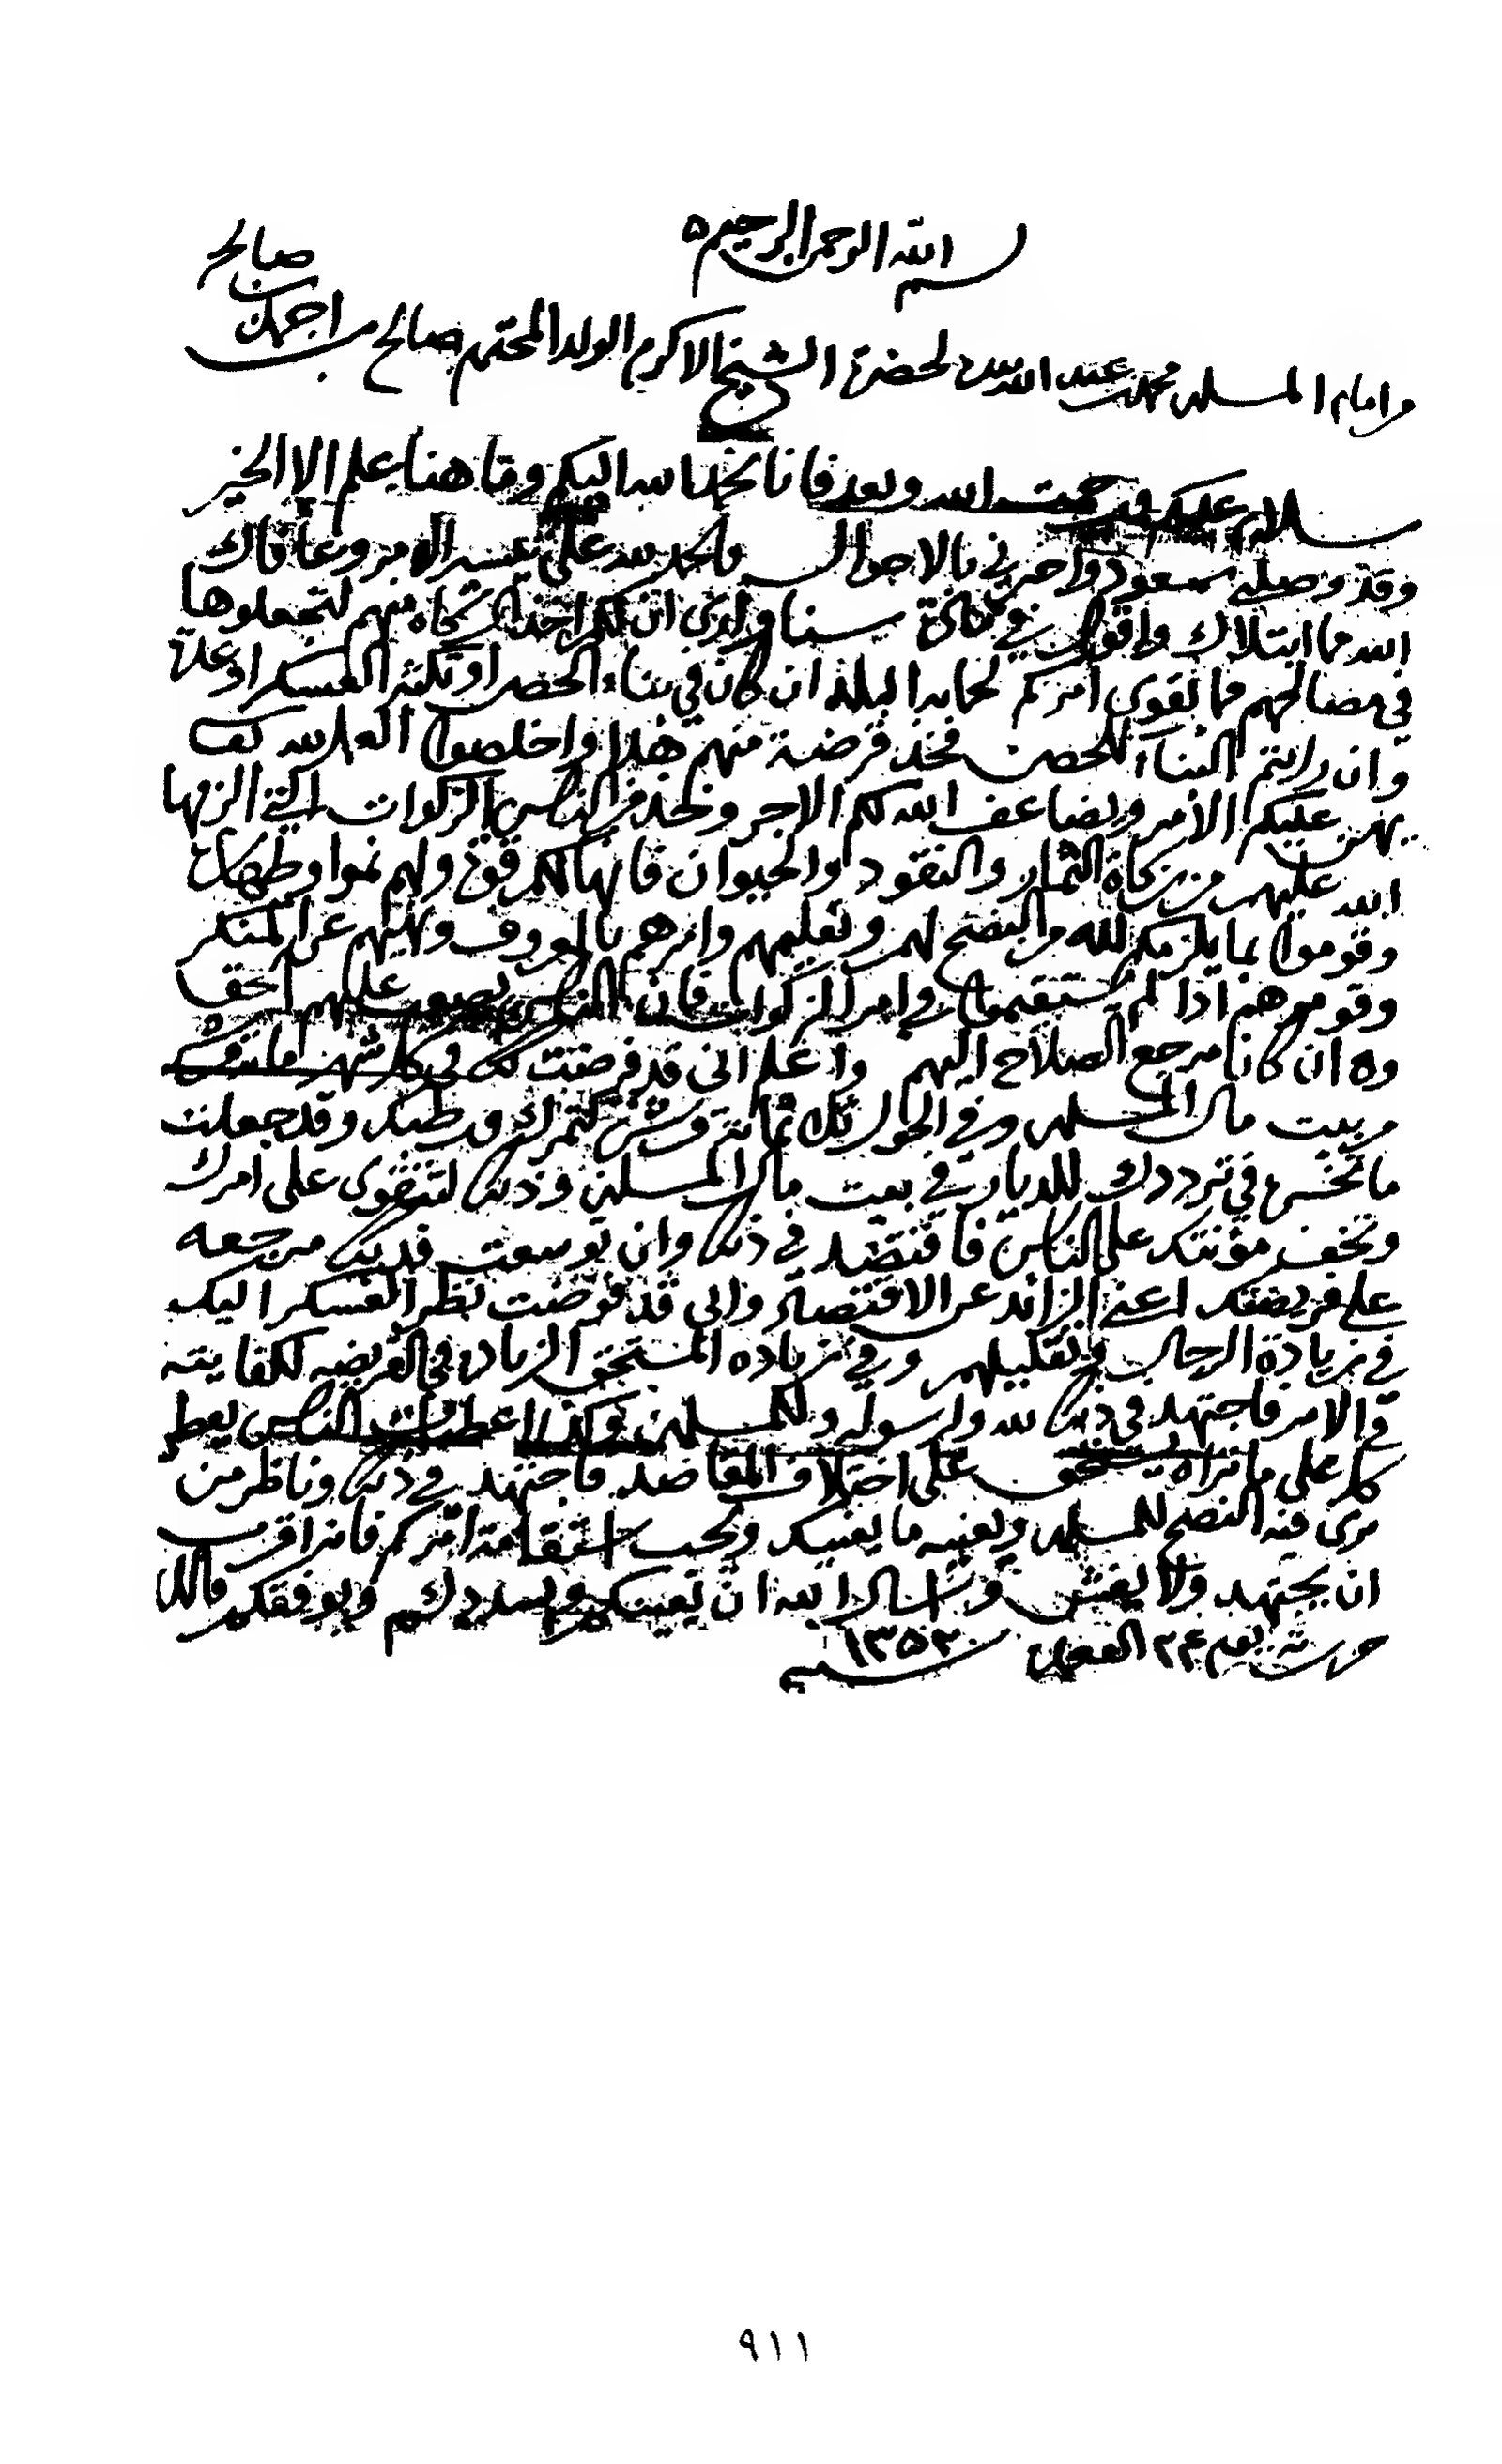 بسم الله الرحمن الرحيم
صالح
من امام المسلمين محمد بن عبد الله لحضرة الشيخ الاكرم الولد المحترم صالح بن احمد بن
سلام عليكم ورحمت الله وبعد فانا نحمد الله اليكم وما هنا علم الا الخير
وقد وصلني سعود واخبرني بالاحوال والحمد لله على تيسير الامر وعافاك
الله مما ابتلاك واقول في زكاة سناو ارى ان لكم اخذ الزكاة منهم لتجعلوها
في مصالحهم مما يقوى امركم لحماية البلد ان كان في بناء الحصن او تكثير العسكر او عدة
وان رايتم البناء للحصن فخذ قرضة منهم هذا واخلصوا العمل لله كف
يهن عليكم الامر ويضاعف الله لكم الاجر وخذ من الناس الزكوات التي الزمها
الله عليهم من زكاة الثمار والنقود والحيوان فانها لكم قوة ولهم نموا وطهارة
وقوموا بما يلزمكم لله من النصح لهم وتعليمهم وامرهم بالمعروف ونهيهم عن المنكر
وقوموهم اذا لم يستقيموا في امر الزكوات فان الناس يصعب عليهم الحق
وان كان مرجع الصلاح اليهم واعلم اني قد فرضت لك في كل شهر مائة قرش
من بيت مال المسلمين وفي الحال تلك ثمانية قروش لتمرك وحطبك وقد جعلت
ما تخسر في ترددك للديار في بيت مال المسلمين وذلك لتتقوى على امرك
وتخف مؤنتك على الناس فاقتصد في ذلك وان توسعت فذلك مرجعه
على فريضتك اعني الزائد عن الاقتصاد واني قد فوضت نظر العسكر اليك
في زيادة الرجال وتقليلهم وفي زيادة المستحق الزيادة في الفريضه لكفايته
في الامر فاجتهد في ذلك لله ولرسوله وللمسلمين وكذا اعطيات الناس يعطى
كل على ما تراه يستحق على اختلاف المقاصد فاجتهد في ذلك وناظر من
ترى فيه النصح للمسلمين ويعنيه ما يعنيك ويحب استقامة امركم فانه اقرب
ان يجتهد ولا يغش ونسال الله ان يعينكم ويسددكم ويوفقكم والله
حرر يوم ٢٤ القعدة سنة ١٣٥٢
٩١١